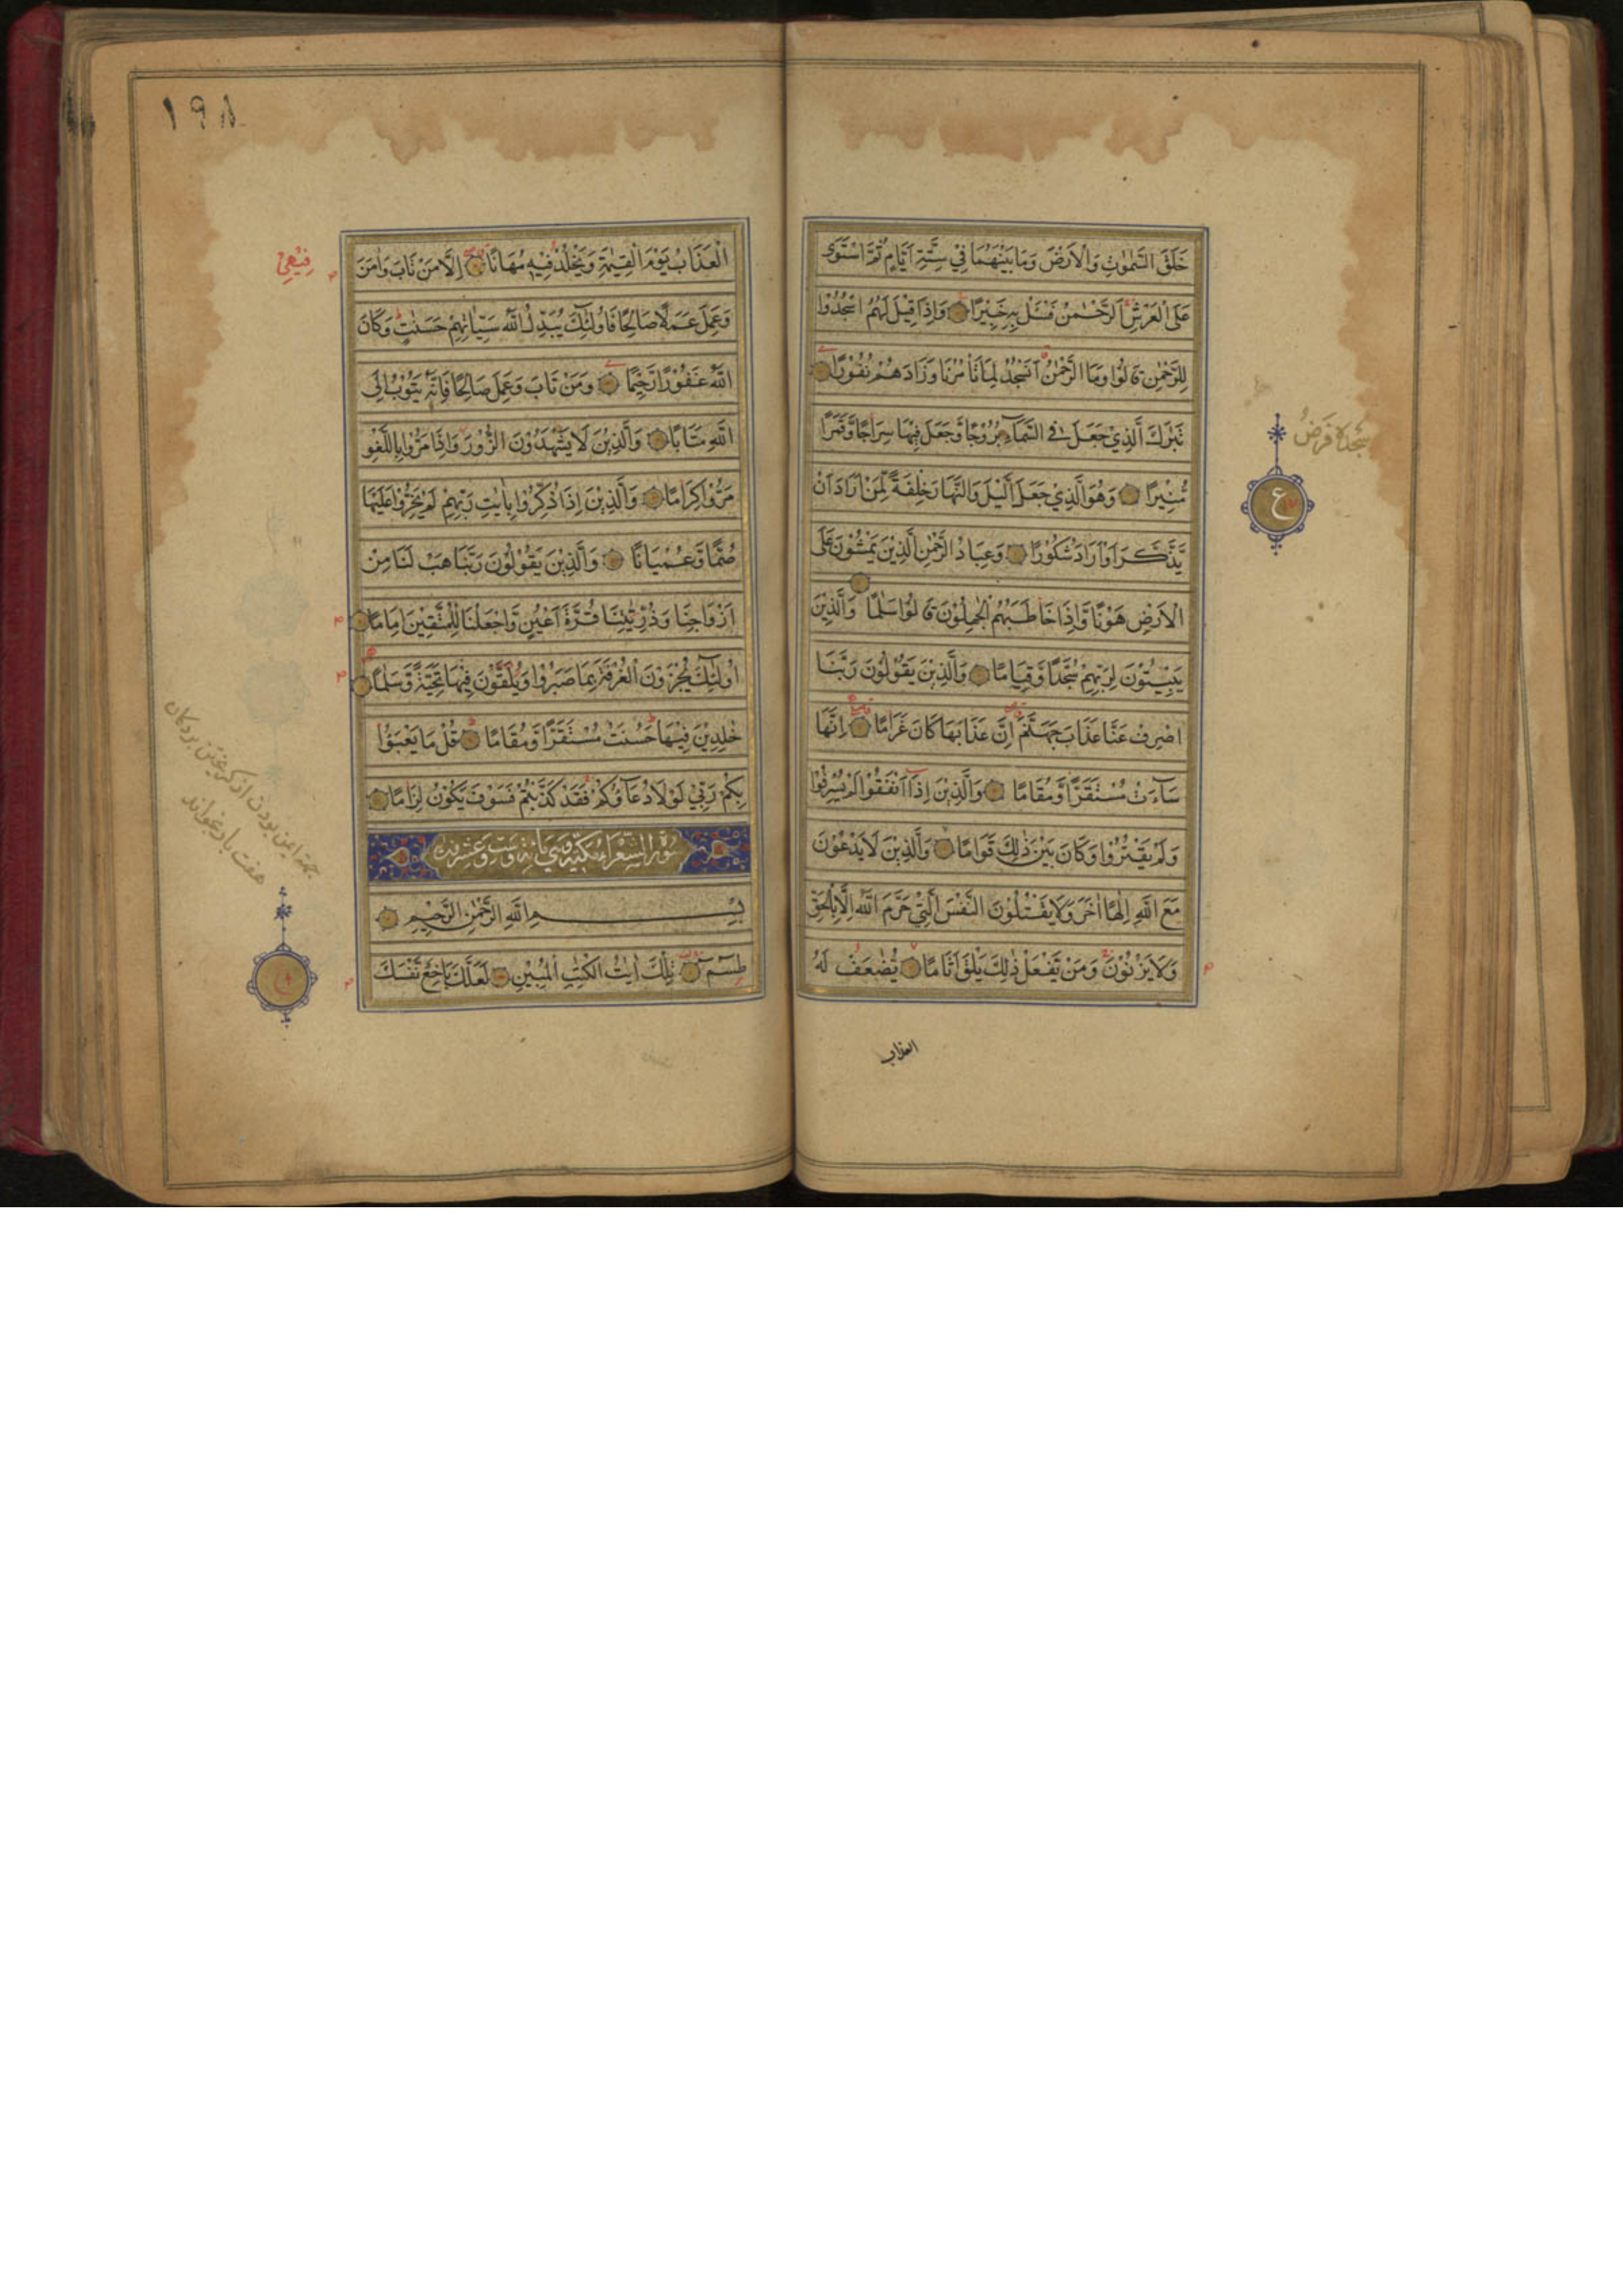 خَلَقَ السَّمٰوٰتِ وَالْاَرْضَ وَمَا بَيْنَهُمَا فِيْ سِتَّةِ اَيَّامٍ ثُمَّ اسْتَوٰى
عَلَى الْعَرْشِ اَلرَّحْمٰنُ فَسْئَلْ بِهٖ خَبِيْرًا وَاِذَا قِيْلَ لَهُمُ اسْجُدُوْا
لِلرَّحْمٰنِ قَالُوْا وَمَا الرَّحْمٰنُ اَنَسْجُدُ لِمَا تَاْمُرُنَا وَزَادَهُمْ نُفُوْرًا
تَبٰرَكَ الَّذِيْ جَعَلَ فِي السَّمَآءِ بُرُوْجًا وَّجَعَلَ فِيْهَا سِرَاجًا وَّقَمَرًا
مُّنِيْرًا وَهُوَ الَّذِيْ جَعَلَ الَّيْلَ وَالنَّهَارَ خِلْفَةً لِّمَنْ اَرَادَ اَنْ
يَّذَّكَّرَ اَوْ اَرَادَ شُكُوْرًا وَعِبَادُ الرَّحْمٰنِ الَّذِيْنَ يَمْشُوْنَ عَلَى
الْاَرْضِ هَوْنًا وَّاِذَا خَاطَبَهُمُ الْجٰهِلُوْنَ قَالُوْا سَلٰمًا وَالَّذِيْنَ
يَبِيْتُوْنَ لِرَبِّهِمْ سُجَّدًا وَّقِيَامًا وَالَّذِيْنَ يَقُوْلُوْنَ رَبَّنَا
اصْرِفْ عَنَّا عَذَابَ جَهَنَّمَ اِنَّ عَذَابَهَا كَانَ غَرَامًا اِنَّهَا
سَآءَتْ مُسْتَقَرًّا وَّمُقَامًا وَالَّذِيْنَ اِذَا اَنْفَقُوْا لَمْ يُسْرِفُوْا
وَلَمْ يَقْتُرُوْا وَكَانَ بَيْنَ ذٰلِكَ قَوَامًا وَالَّذِيْنَ لَا يَدْعُوْنَ
مَعَ اللّٰهِ اِلٰهًا اٰخَرَ وَلَا يَقْتُلُوْنَ النَّفْسَ الَّتِيْ حَرَّمَ اللّٰهُ اِلَّا بِالْحَقِّ
وَلَا يَزْنُوْنَ وَمَنْ يَّفْعَلْ ذٰلِكَ يَلْقَ اَثَامًا يُّضٰعَفْ لَهُ
العذاب
سجدة فرض
ع
١٩٨
الْعَذَابُ يَوْمَ الْقِيٰمَةِ وَيَخْلُدْ فِيْهٖ مُهَانًا اِلَّا مَنْ تَابَ وَاٰمَنَ
وَعَمِلَ عَمَلًا صَالِحًا فَاُولٰئِكَ يُبَدِّلُ اللّٰهُ سَيِّاٰتِهِمْ حَسَنٰتٍ وَكَانَ
اللّٰهُ غَفُوْرًا رَّحِيْمًا وَمَنْ تَابَ وَعَمِلَ صَالِحًا فَاِنَّهٗ يَتُوْبُ اِلَى
اللّٰهِ مَتَابًا وَالَّذِيْنَ لَا يَشْهَدُوْنَ الزُّوْرَ وَاِذَا مَرُّوْا بِاللَّغْوِ
مَرُّوْا كِرَامًا وَالَّذِيْنَ اِذَا ذُكِّرُوْا بِاٰيٰتِ رَبِّهِمْ لَمْ يَخِرُّوْا عَلَيْهَا
صُمًّا وَّعُمْيَانًا وَالَّذِيْنَ يَقُوْلُوْنَ رَبَّنَا هَبْ لَنَا مِنْ
اَزْوَاجِنَا وَذُرِّيّٰتِنَا قُرَّةَ اَعْيُنٍ وَّاجْعَلْنَا لِلْمُتَّقِيْنَ اِمَامًا
اُولٰٓئِكَ يُجْزَوْنَ الْغُرْفَةَ بِمَا صَبَرُوْا وَيُلَقَّوْنَ فِيْهَا تَحِيَّةً وَّسَلٰمًا
خٰلِدِيْنَ فِيْهَا حَسُنَتْ مُسْتَقَرًّا وَّمُقَامًا قُلْ مَا يَعْبَؤُا
بِكُمْ رَبِّيْ لَوْلَا دُعَآؤُكُمْ فَقَدْ كَذَّبْتُمْ فَسَوْفَ يَكُوْنُ لِزَامًا
سورة الشعراء مكية وهي مائة وست وعشرون
بِسْمِ اللّٰهِ الرَّحْمٰنِ الرَّحِيْمِ
طٰسٓمٓ تِلْكَ اٰيٰتُ الْكِتٰبِ الْمُبِيْنِ لَعَلَّكَ بَاخِعٌ نَّفْسَكَ